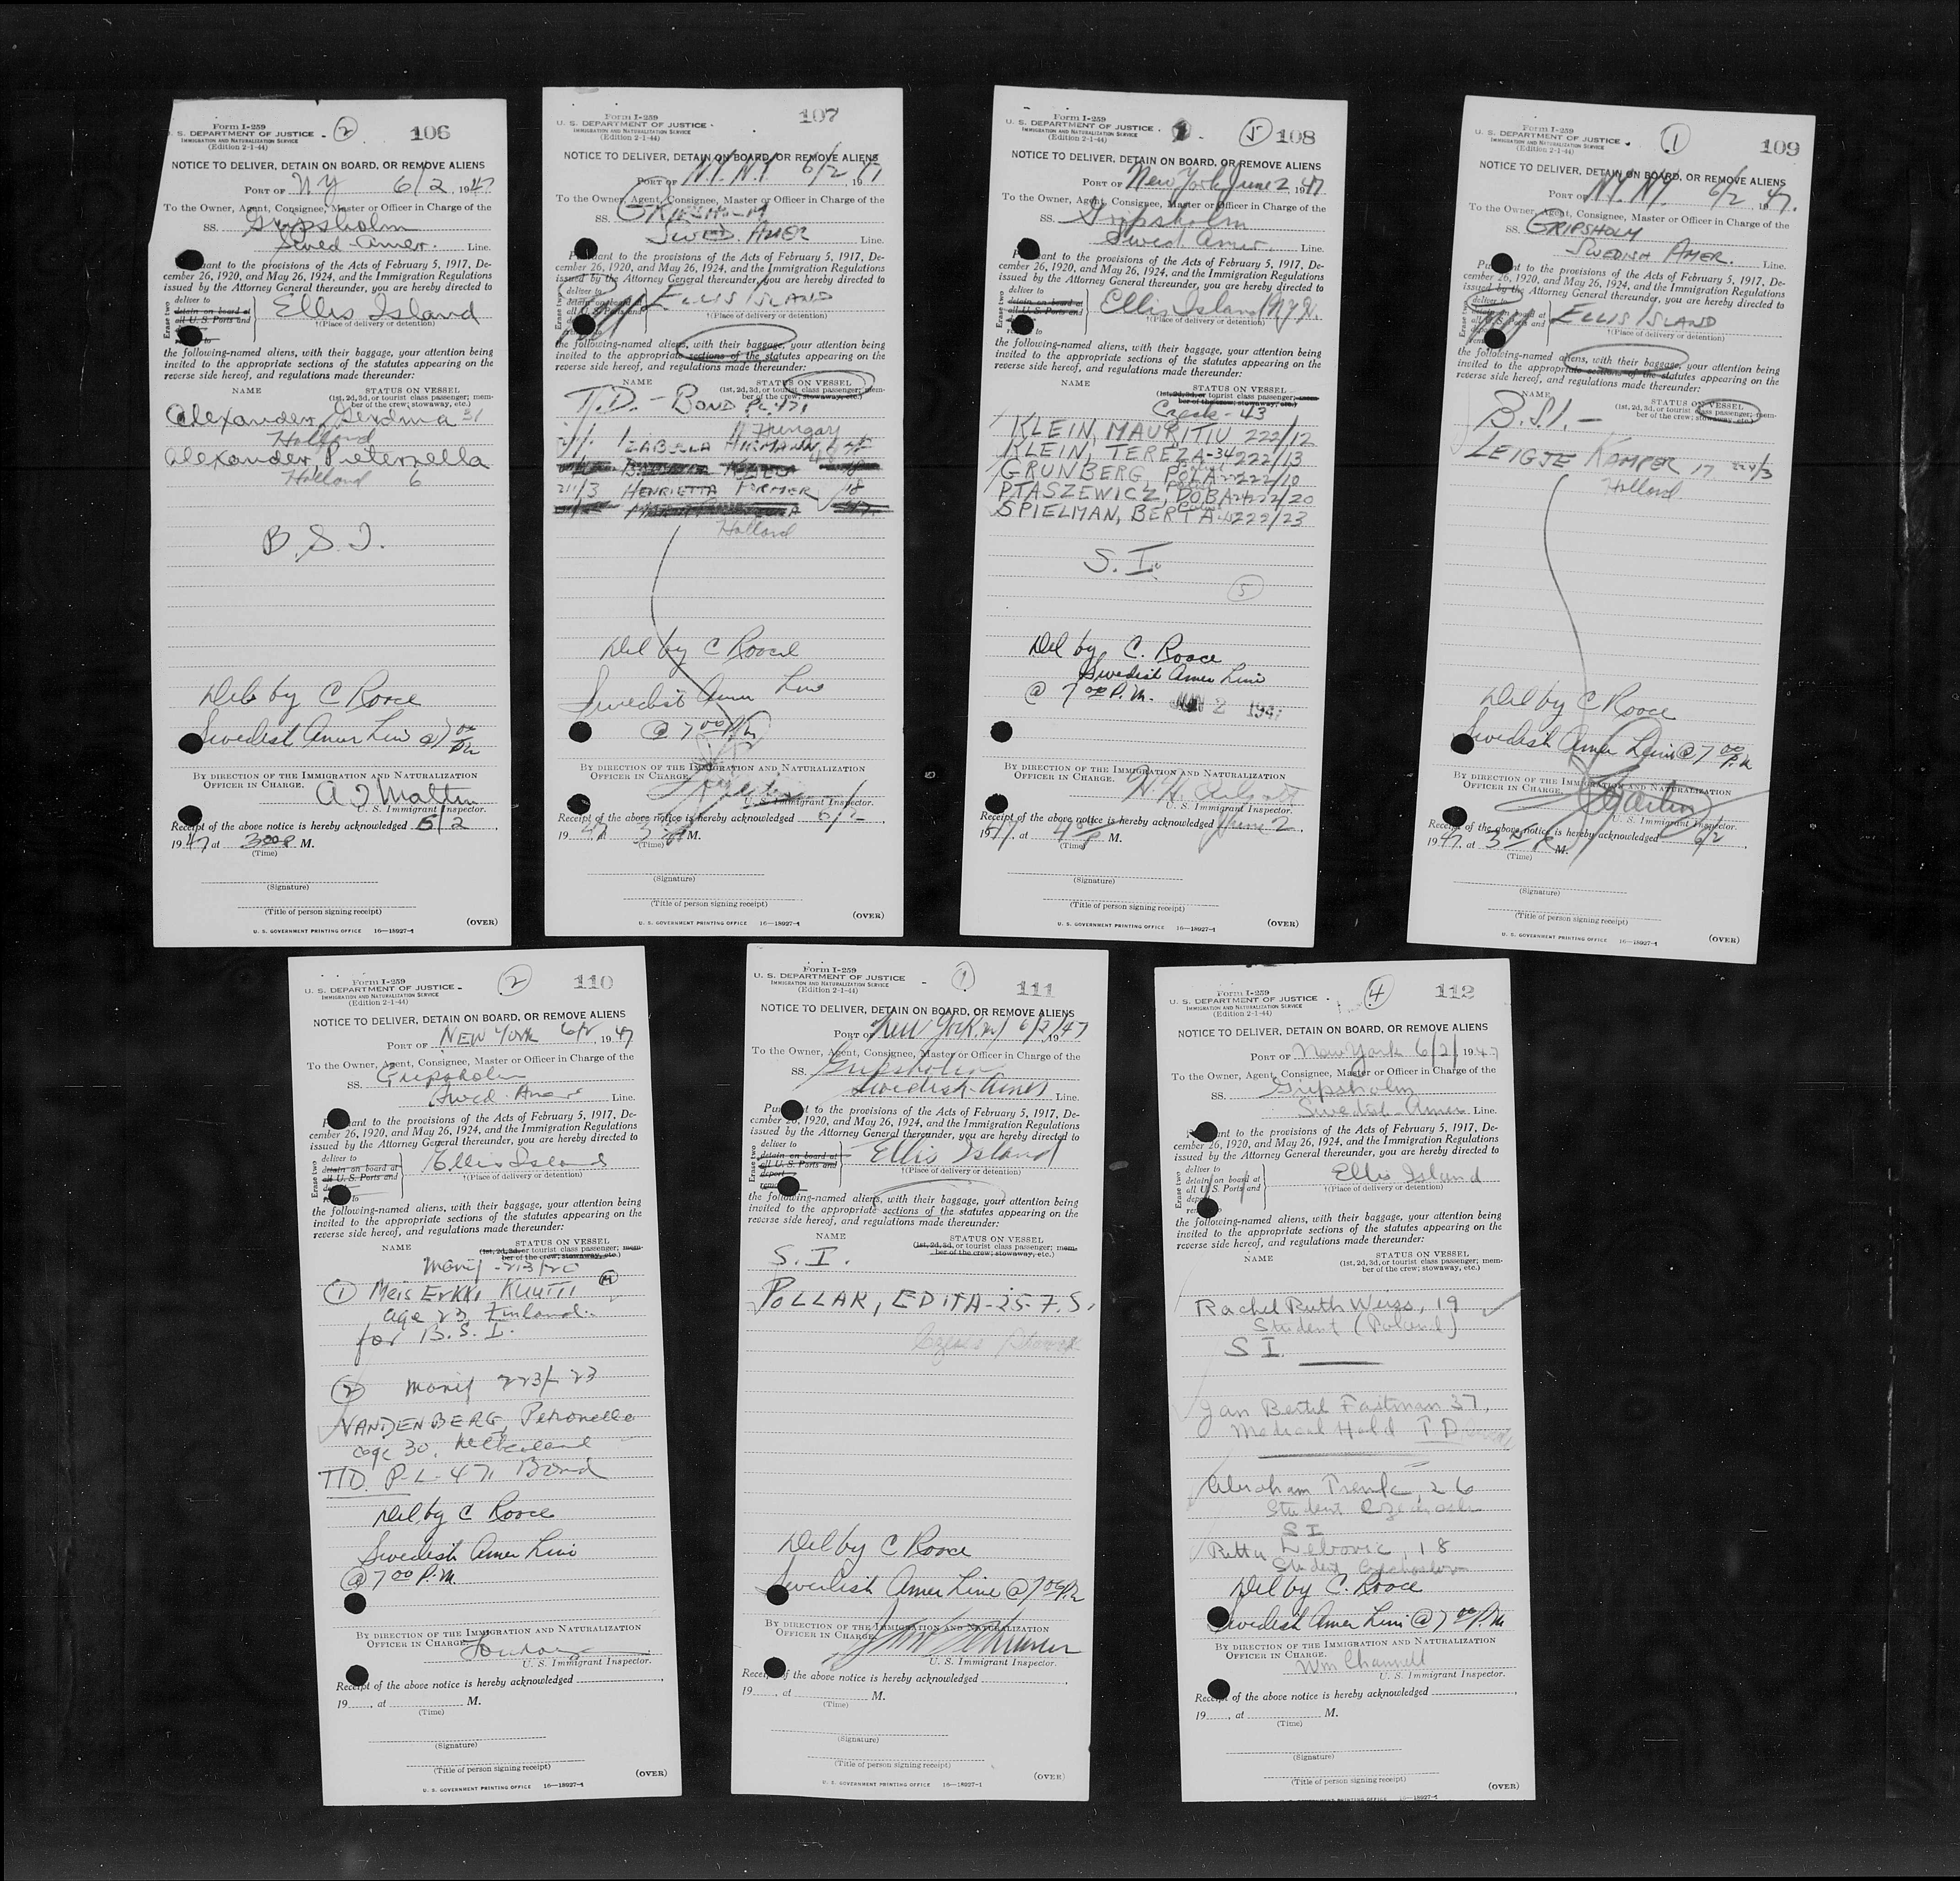 Form I-259
S. DEPARTMENT OF JUSTICE - 2 106
IMMIGRATION AND NATURALIZATION SERVICE
(Edition 2-1-44)
NOTICE TO DELIVER, DETAIN ON BOARD, OR REMOVE ALIENS
PORT OF NY 6/2, 1947
To the Owner, Agent, Consignee, Master or Officer in Charge of the
SS. Gripsholm
Swed-Amer. Line.
uant to the provisions of the Acts of February 5, 1917, De-
cember 26, 1920, and May 26, 1924, and the Immigration Regulations
issued by the Attorney General thereunder, you are hereby directed to
Erase two
deliver to
detain on board at
all U. S. Ports and
Ellis Island
†(Place of delivery or detention)
the following-named aliens, with their baggage, your attention being
invited to the appropriate sections of the statutes appearing on the
reverse side hereof, and regulations made thereunder:
NAME STATUS ON VESSEL
(1st, 2d, 3d, or tourist class passenger; mem-
ber of the crew; stowaway, etc.)
Alexander, 31
Holland
Alexander Pieternella
Holland 6
B.S.I.
Del by C Rooce
Swedish Amer Line @ 7 00 PM
BY DIRECTION OF THE IMMIGRATION AND NATURALIZATION
OFFICER IN CHARGE.
U. S. Immigrant Inspector.
Receipt of the above notice is hereby acknowledged 6/2,
1947 at 3 00 P. M.
(Time)
(Signature)
(Title of person signing receipt)
(OVER)
U. S. GOVERNMENT PRINTING OFFICE 16—18927-1
Form I-259 107
U. S. DEPARTMENT OF JUSTICE -
IMMIGRATION AND NATURALIZATION SERVICE
(Edition 2-1-44)
NOTICE TO DELIVER, DETAIN ON BOARD, OR REMOVE ALIENS
PORT OF N.Y. N.Y 6/2 1947
To the Owner, Agent, Consignee, Master or Officer in Charge of the
SS. GRIPSHOLM
SWED. AMER Line.
Pu ant to the provisions of the Acts of February 5, 1917, De-
cember 26, 1920, and May 26, 1924, and the Immigration Regulations
issued by the Attorney General thereunder, you are hereby directed to
Erase two
deliver to
detain on board at
ELLIS ISLAND
†(Place of delivery or detention)
the following-named aliens, with their baggage, your attention being
invited to the appropriate sections of the statutes appearing on the
reverse side hereof, and regulations made thereunder:
NAME STATUS ON VESSEL
(1st, 2d, 3d, or tourist class passenger; mem-
ber of the crew; stowaway, etc.)
T.D. - BOND P.L. 471
Hungary
IZABELLA HIRMANN
HENRIETTA FORMER 18
Holland
Del by C Rooce
Swedish Amer Line
@ 7 00 PM
BY DIRECTION OF THE IMMIGRATION AND NATURALIZATION
OFFICER IN CHARGE.
U. S. Immigrant Inspector.
Receipt of the above notice is hereby acknowledged
1947 at M.
(Time)
(Signature)
(Title of person signing receipt)
(OVER)
U. S. GOVERNMENT PRINTING OFFICE 16—18927-1
Form I-259
U. S. DEPARTMENT OF JUSTICE - 5 108
IMMIGRATION AND NATURALIZATION SERVICE
(Edition 2-1-44)
NOTICE TO DELIVER, DETAIN ON BOARD, OR REMOVE ALIENS
PORT OF New York June 2, 1947
To the Owner, Agent, Consignee, Master or Officer in Charge of the
SS. Gripsholm
Swed. Amer. Line.
Pu ant to the provisions of the Acts of February 5, 1917, De-
cember 26, 1920, and May 26, 1924, and the Immigration Regulations
issued by the Attorney General thereunder, you are hereby directed to
Erase two
deliver to
detain on board at
all U. S. Ports and
Ellis Island N.Y.H.
†(Place of delivery or detention)
the following-named aliens, with their baggage, your attention being
invited to the appropriate sections of the statutes appearing on the
reverse side hereof, and regulations made thereunder:
NAME STATUS ON VESSEL
(1st, 2d, 3d, or tourist class passenger; mem-
ber of the crew; stowaway, etc.)
Czech - 43
KLEIN, MAURITIU 222/12
KLEIN, TEREZA-34 222/13
GRUNBERG, POLA 222/10
PTASZEWICZ, DOBA 222/20
SPIELMAN, BERTA 223/23
S.I.
5
Del by C. Rooce
Swedish Amer Line
@ 7 00 P.M. JUN 2 1947
BY DIRECTION OF THE IMMIGRATION AND NATURALIZATION
OFFICER IN CHARGE.
U. S. Immigrant Inspector.
Receipt of the above notice is hereby acknowledged June 2,
1947, at 4 00 P M.
(Time)
(Signature)
(Title of person signing receipt)
(OVER)
U. S. GOVERNMENT PRINTING OFFICE 16—18927-1
Form I-259
U. S. DEPARTMENT OF JUSTICE - 1 109
IMMIGRATION AND NATURALIZATION SERVICE
(Edition 2-1-44)
NOTICE TO DELIVER, DETAIN ON BOARD, OR REMOVE ALIENS
PORT OF N.Y. N.Y. 6/2 1947.
To the Owner, Agent, Consignee, Master or Officer in Charge of the
SS. GRIPSHOLM
SWEDISH AMER. Line.
Pu nt to the provisions of the Acts of February 5, 1917, De-
cember 26, 1920, and May 26, 1924, and the Immigration Regulations
issued by the Attorney General thereunder, you are hereby directed to
Erase two
deliver to
ELLIS ISLAND
†(Place of delivery or detention)
the following-named aliens, with their baggage, your attention being
invited to the appropriate sections of the statutes appearing on the
reverse side hereof, and regulations made thereunder:
NAME STATUS ON VESSEL
(1st, 2d, 3d, or tourist class passenger; mem-
ber of the crew; stowaway, etc.)
B.S.I. -
LEIGJE KAMPER 17
Holland
Del by C Rooce
Swedish Amer Line @ 7 00 P.M
BY DIRECTION OF THE IMMIGRATION AND NATURALIZATION
OFFICER IN CHARGE.
U. S. Immigrant Inspector.
Receipt of the above notice is hereby acknowledged 6/2,
1947, at M.
(Time)
(Signature)
(Title of person signing receipt)
(OVER)
U. S. GOVERNMENT PRINTING OFFICE 16—18927-1
Form I-259
U. S. DEPARTMENT OF JUSTICE - 2 110
IMMIGRATION AND NATURALIZATION SERVICE
(Edition 2-1-44)
NOTICE TO DELIVER, DETAIN ON BOARD, OR REMOVE ALIENS
PORT OF NEW YORK 6/2, 1947
To the Owner, Agent, Consignee, Master or Officer in Charge of the
SS. Gripsholm
Swed-Amer Line.
P ant to the provisions of the Acts of February 5, 1917, De-
cember 26, 1920, and May 26, 1924, and the Immigration Regulations
issued by the Attorney General thereunder, you are hereby directed to
Erase two
deliver to
detain on board at
all U. S. Ports and
Ellis Island
†(Place of delivery or detention)
the following-named aliens, with their baggage, your attention being
invited to the appropriate sections of the statutes appearing on the
reverse side hereof, and regulations made thereunder:
NAME STATUS ON VESSEL
(1st, 2d, 3d, or tourist class passenger; mem-
ber of the crew; stowaway, etc.)
Manif - 213/20
1 Meis ERKKI KUUTTI M
age 23 Finland.
for B.S.I.
2 Manif 223/23
VANDENBERG, Petronella
age 30, Netherland
TD. P-L-471 Bond
Del by C Rooce
Swedish Amer Line
@ 7 00 P.M.
BY DIRECTION OF THE IMMIGRATION AND NATURALIZATION
OFFICER IN CHARGE.
U. S. Immigrant Inspector.
Receipt of the above notice is hereby acknowledged
19 , at M.
(Time)
(Signature)
(Title of person signing receipt)
(OVER)
U. S. GOVERNMENT PRINTING OFFICE 16—18927-1
Form I-259
U. S. DEPARTMENT OF JUSTICE - 1 111
IMMIGRATION AND NATURALIZATION SERVICE
(Edition 2-1-44)
NOTICE TO DELIVER, DETAIN ON BOARD, OR REMOVE ALIENS
PORT OF New York NY 6/2/47
To the Owner, Agent, Consignee, Master or Officer in Charge of the
SS. Gripsholm
Swedish-Amer Line.
Pu t to the provisions of the Acts of February 5, 1917, De-
cember 26, 1920, and May 26, 1924, and the Immigration Regulations
issued by the Attorney General thereunder, you are hereby directed to
Erase two
deliver to
detain on board at
all U. S. Ports and
deport
Ellis Island
†(Place of delivery or detention)
the following-named aliens, with their baggage, your attention being
invited to the appropriate sections of the statutes appearing on the
reverse side hereof, and regulations made thereunder:
NAME STATUS ON VESSEL
(1st, 2d, 3d, or tourist class passenger; mem-
ber of the crew; stowaway, etc.)
S.I.
POLLAK, EDITA-25-F.S.
Del by C Rooce
Swedish Amer Line @ 7 00 PM
BY DIRECTION OF THE IMMIGRATION AND NATURALIZATION
OFFICER IN CHARGE.
U. S. Immigrant Inspector.
Receipt of the above notice is hereby acknowledged
19 , at M.
(Time)
(Signature)
(Title of person signing receipt)
(OVER)
U. S. GOVERNMENT PRINTING OFFICE 16—18927-1
Form I-259
U. S. DEPARTMENT OF JUSTICE - 4 112
IMMIGRATION AND NATURALIZATION SERVICE
(Edition 2-1-44)
NOTICE TO DELIVER, DETAIN ON BOARD, OR REMOVE ALIENS
PORT OF New York 6/2/, 1947
To the Owner, Agent, Consignee, Master or Officer in Charge of the
SS. Gripsholm
Swedish-Amer Line.
ant to the provisions of the Acts of February 5, 1917, De-
cember 26, 1920, and May 26, 1924, and the Immigration Regulations
issued by the Attorney General thereunder, you are hereby directed to
Erase two
deliver to
detain on board at
all U. S. Ports and
Ellis Island
†(Place of delivery or detention)
the following-named aliens, with their baggage, your attention being
invited to the appropriate sections of the statutes appearing on the
reverse side hereof, and regulations made thereunder:
NAME STATUS ON VESSEL
(1st, 2d, 3d, or tourist class passenger; mem-
ber of the crew; stowaway, etc.)
Rachel Ruth Weiss, 19
Student (Poland)
SI
Jan Bertil Fastman 37,
Medical Hold TD
Abraham 26
Student
SI
18
Student
Del by C. Rooce
Swedish Amer Line @ 7 00 P.M
BY DIRECTION OF THE IMMIGRATION AND NATURALIZATION
OFFICER IN CHARGE.
Wm Channell
U. S. Immigrant Inspector.
Receipt of the above notice is hereby acknowledged
19 , at M.
(Time)
(Signature)
(Title of person signing receipt)
(OVER)